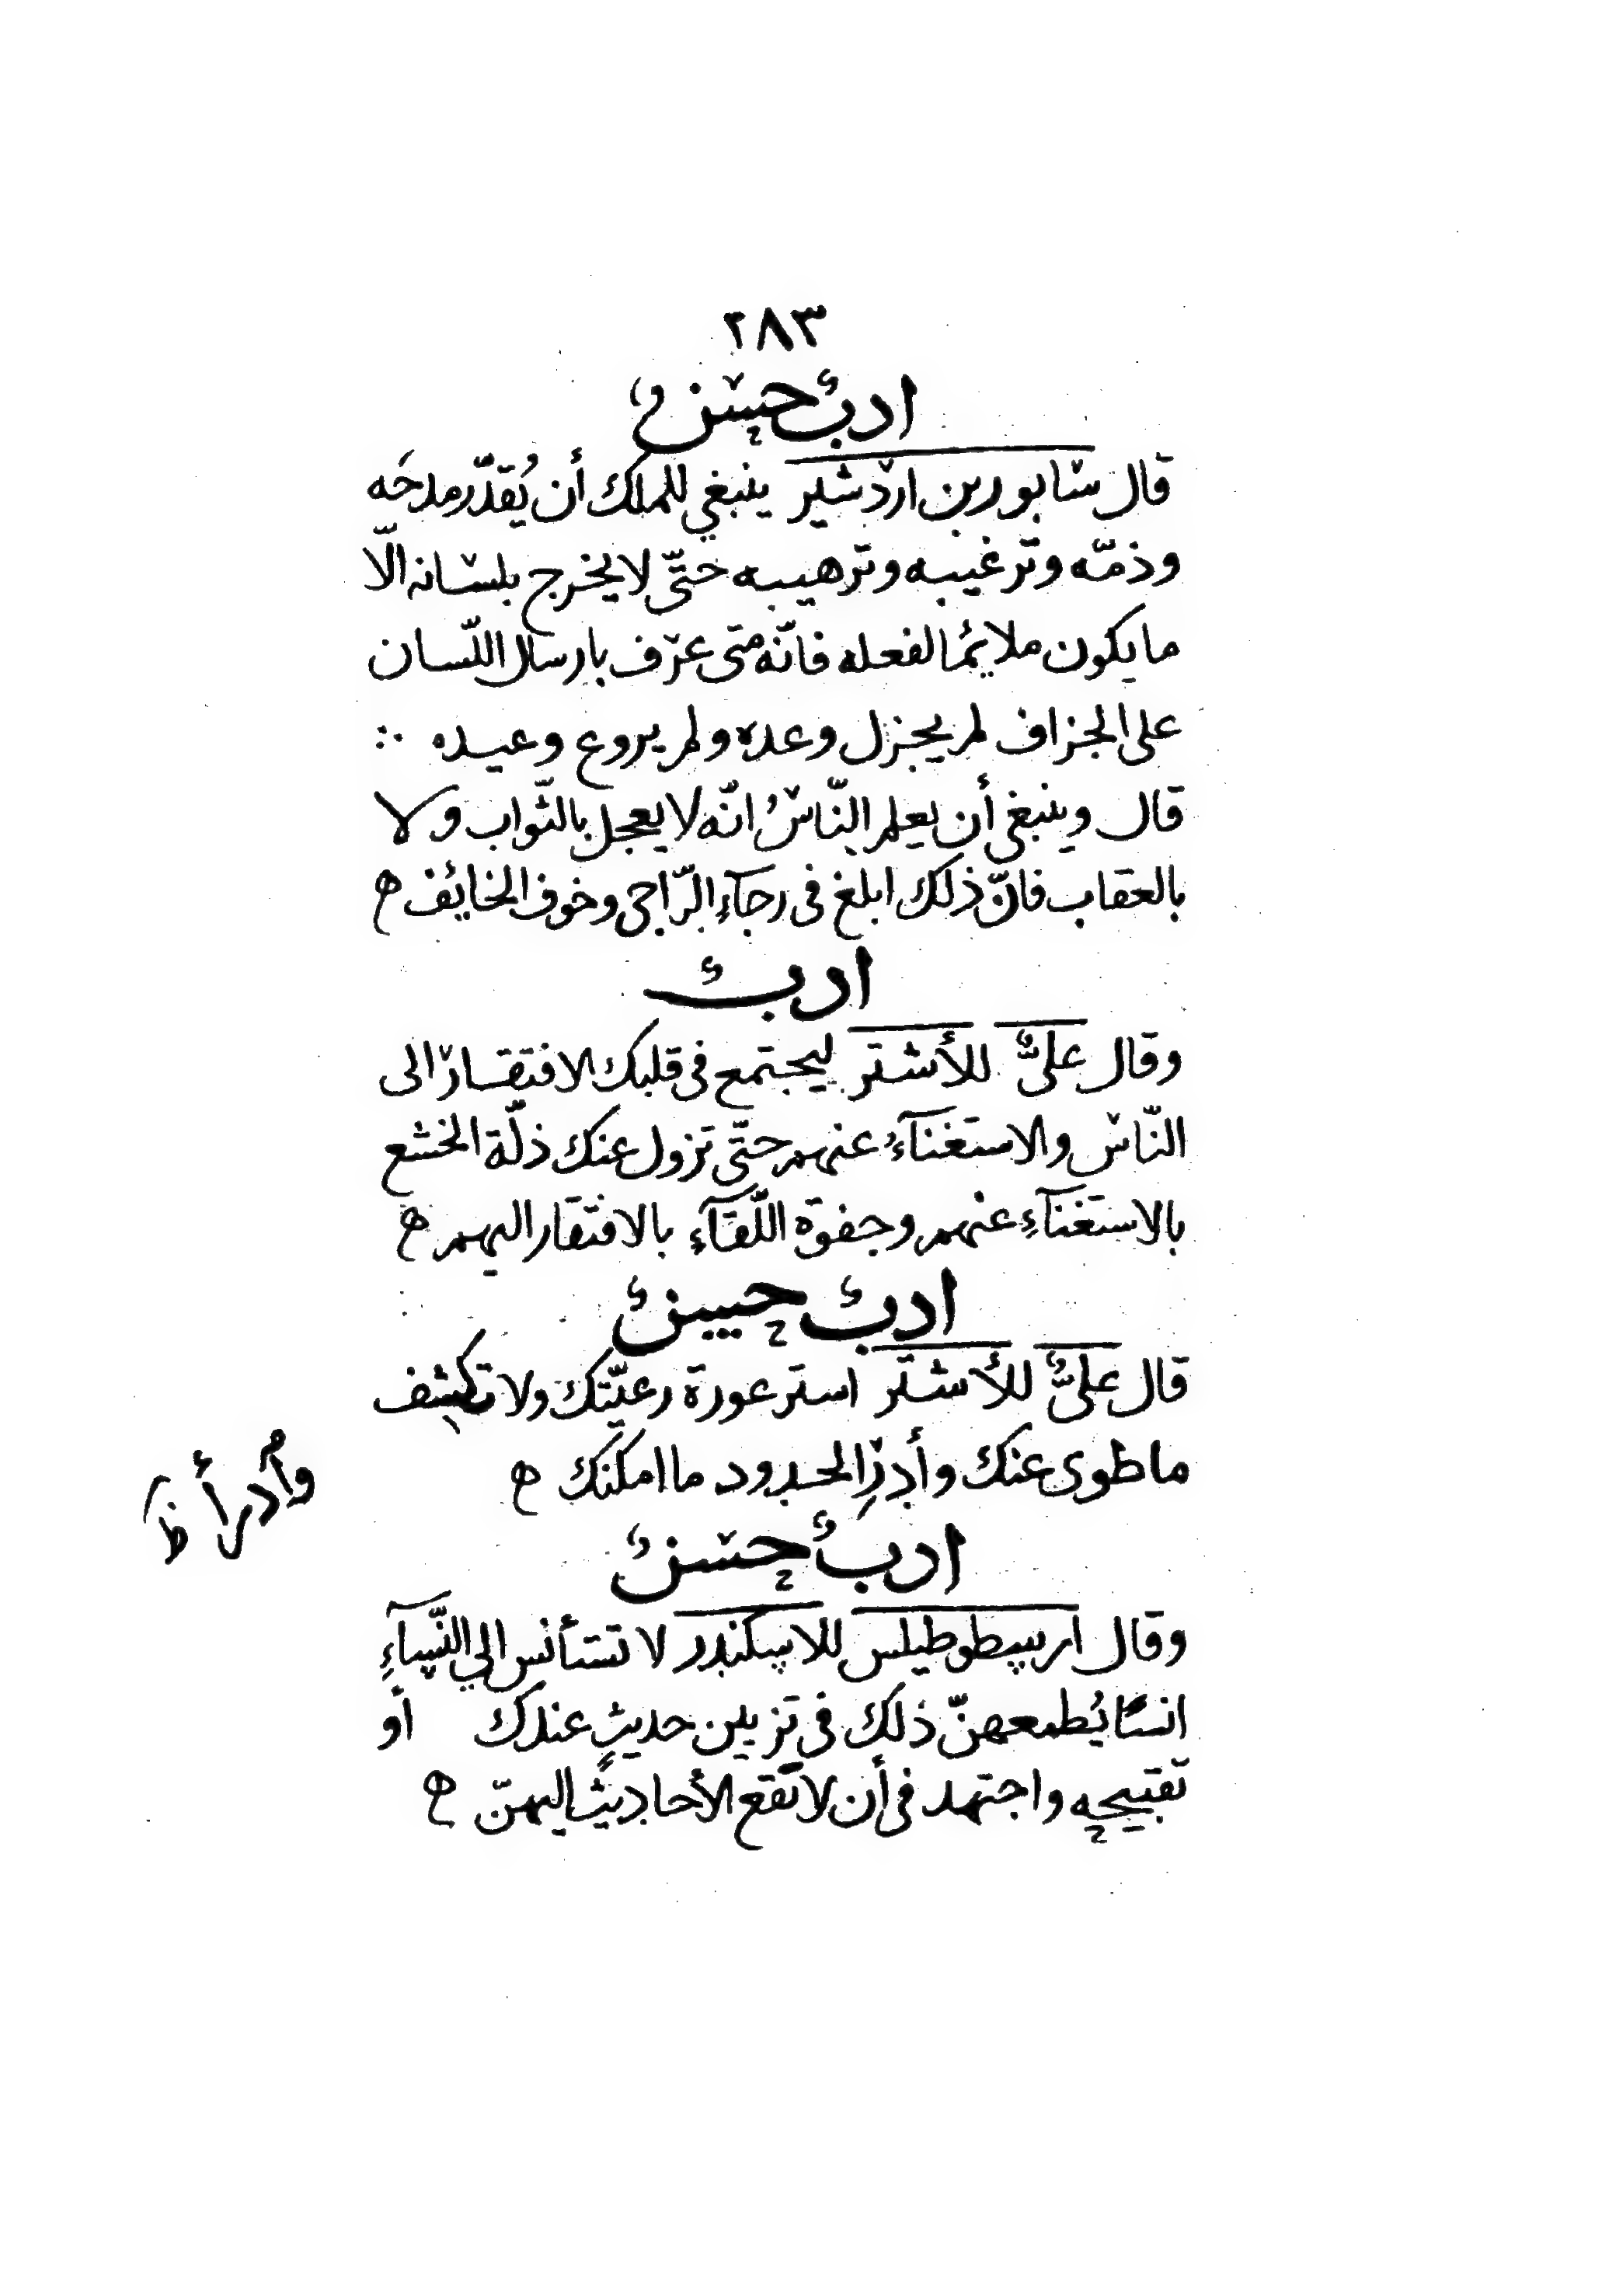 ٢٨٣
ادبٌ حسنٌ
قال سابور بن اردشير ينبغي للملك أن يُقدّر مدحَه
وذمّه وترغيبه وترهيبه حتّى لا يخرج بلسانه الّا
ما يكون ملائمًا لفعله فانّه متى عرف بارسال اللّسان
على الجزاف لم يجزل وعده ولم يروع وعيده ∴
قال وينبغى أن يعلم النّاسُ انّه لا يعجل بالثّواب ولا
بالعقاب فانّ ذلك ابلغ فى رجآءِ الرّاجى وخوف الخائف ه
ادبٌ
وقال علىٌّ للأشتر ليجتمع فى قلبك الافتقار الى
النّاس والاستغنآءُ عنهم حتّى تزول عنك ذلّة الخشع
بالاستغنآءِ عنهم وجفوة اللّقآءِ بالافتقار اليهم ه
ادبٌ حسنٌ
قال علىٌّ للأشتر استر عورة رعيّتك ولا تكشف
ما طوى عنك وأدرِ الحدود ما امكنك ه
وأدرأ ظ
ادبٌ حسنٌ
وقال ارسطوطيلس للاسكندر لا تستأنس الي النّسآءِ
انسًا يُطمعهنّ ذلك فى تزيين حديثٍ عندك أو
تقبيحه واجتهد فى أن لا تقع الأحاديث اليهنّ ه